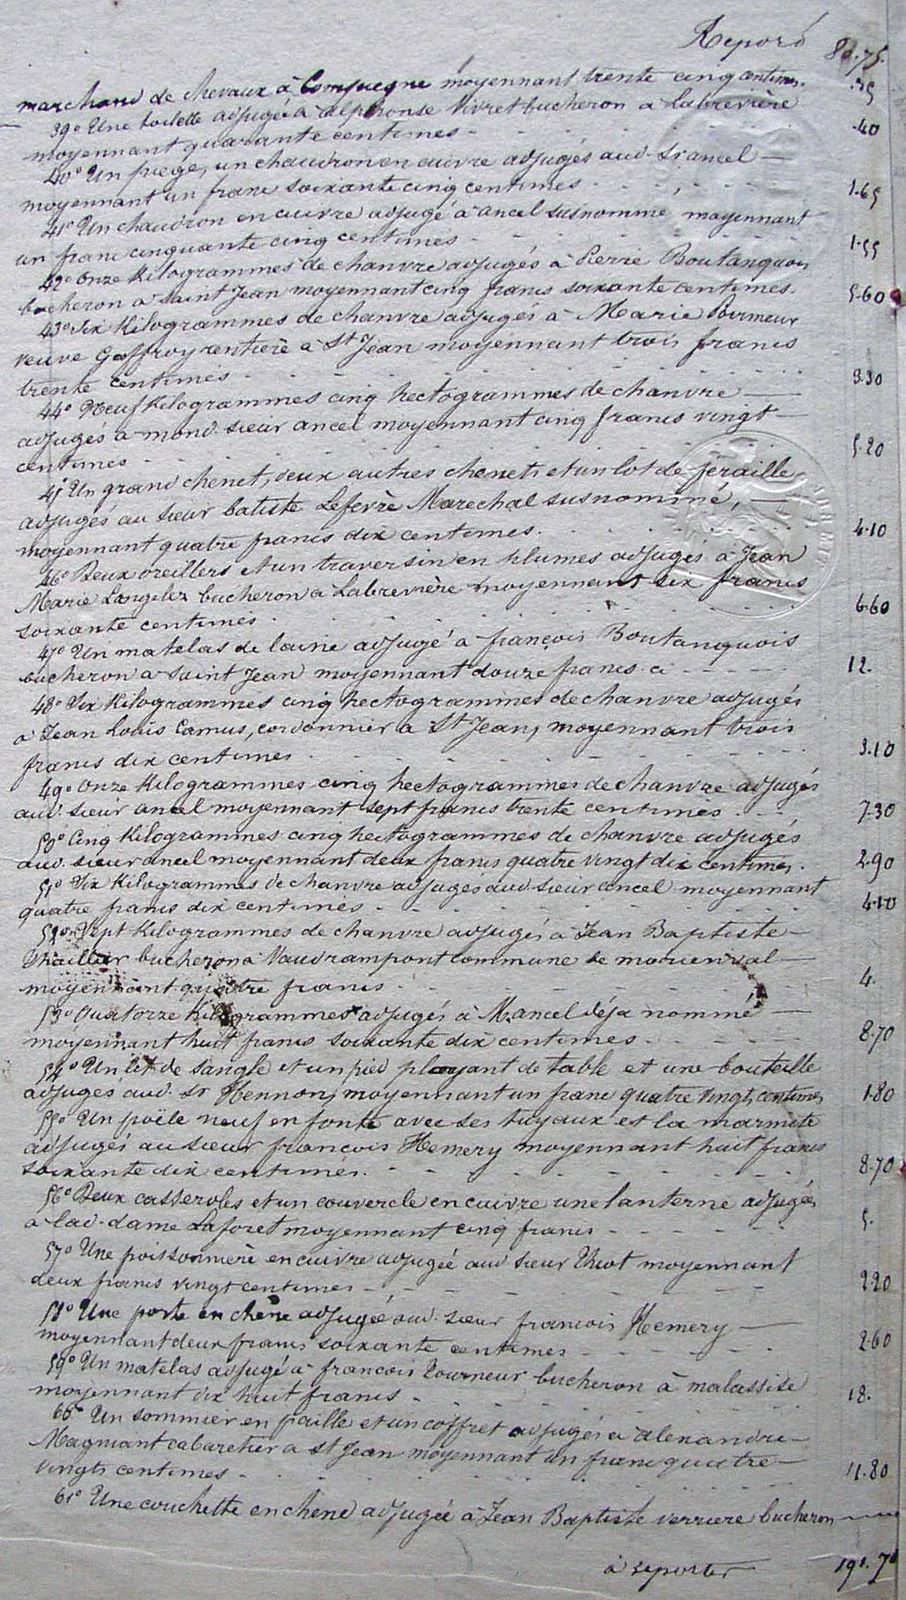 Report 80.75.
marchand de chevaux à Compiegne moyennant trente cinq centimes. .35
39° Une toilette adjugée à alphonse Vivret bucheron à Labrevière
moyennant quarante centimes - .40
40° Un piege, un chaudron en cuivre adjugés aud. Sr ancel —
moyennant un franc soixante cinq centimes - 1.65
41° Un chaudron en cuivre adjugé à ancel susnommé, moyennant
un franc cinquante cinq centimes - 1.55
42° Onze Kilogrammes de chanvre adjugés à Pierre Boutanquois
bucheron à Saint Jean moyennant cinq francs soixante centimes. 5.60
43° Six Kilogrammes de chanvre adjugés à Marie
veuve Goffroy rentière à St Jean moyennant trois francs
trente centimes - 3.30
44° Neuf Kilogrammes cinq hectogrammes de chanvre —
adjugés à mond. sieur ancel moyennant cinq francs vingt
centimes - 5.20
45° Un grand chenet, deux autres chenets et un lot de feraille
adjugés au sieur batiste Lefevre Marechal susnommé, —
moyennant quatre francs dix centimes. 4.10
46° Deux oreillers et un traversin en plumes adjugés à Jean
Marie Langelez bucheron à Labrevière moyennant six francs
soixante centimes - 6.60
47° Un matelas de laine adjugé à françois Boutanquois
bucheron à Saint Jean moyennant douze francs ci - 12.
48° Six Kilogrammes cinq hectogrammes de chanvre adjugés
à Jean Louis Camus, cordonnier à St Jean, moyennant trois
francs dix centimes - 3.10
49° Onze Kilogrammes cinq hectogrammes de chanvre adjugés
aud. sieur ancel moyennant sept francs trente centimes - 7.30
50° Cinq Kilogrammes cinq hectogrammes de chanvre adjugés
aud. sieur ancel moyennant deux francs quatre vingt dix centimes. 2.90
51° Six Kilogrammes de chanvre adjugés aud sieur ancel moyennant
quatre francs dix centimes - 4.10
52° Sept Kilogrammes de chanvre adjugés à Jean Baptiste —
bucheron à Vaudrampont commune de morienval —
moyennant quatre francs - 4.
53° Quatorze Kilogrammes adjugés à M. ancel déja nommé —
moyennant huit francs soixante dix centimes - 8.70
54° Un lit de sangle et un pied ployant de table et une bouteille
adjugés aud. Sr Hennon, moyennant un franc quatre vingts centimes 1.80
55° Un poële neuf en fonte avec ses tuyaux et la marmite
adjugés au sieur françois Hemery moyennant huit francs
soixante dix centimes. 8.70
56° Deux casseroles et un couvercle en cuivre une lanterne adjugés
à lad. dame Laforet moyennant cinq francs - 5.
57° Une poissonnière en cuivre adjugée aud sieur Thiot moyennant
deux francs vingt centimes - 2.20
58° Une porte en chêne adjugée aud. sieur francois Hemery —
moyennant deux francs soixante centimes - 2.60
59° Un matelas adjugé à francois Tourneur bucheron à malassise
moyennant dix huit francs - 18.
60° Un sommier en paille et un coffret adjugés à alexandre —
Magniant cabaretier à St Jean moyennant un franc quatre —
vingts centimes - 1.80
61° Une couchette en chene adjugée à Jean Baptiste verriere bucheron —
à reporter 191.70